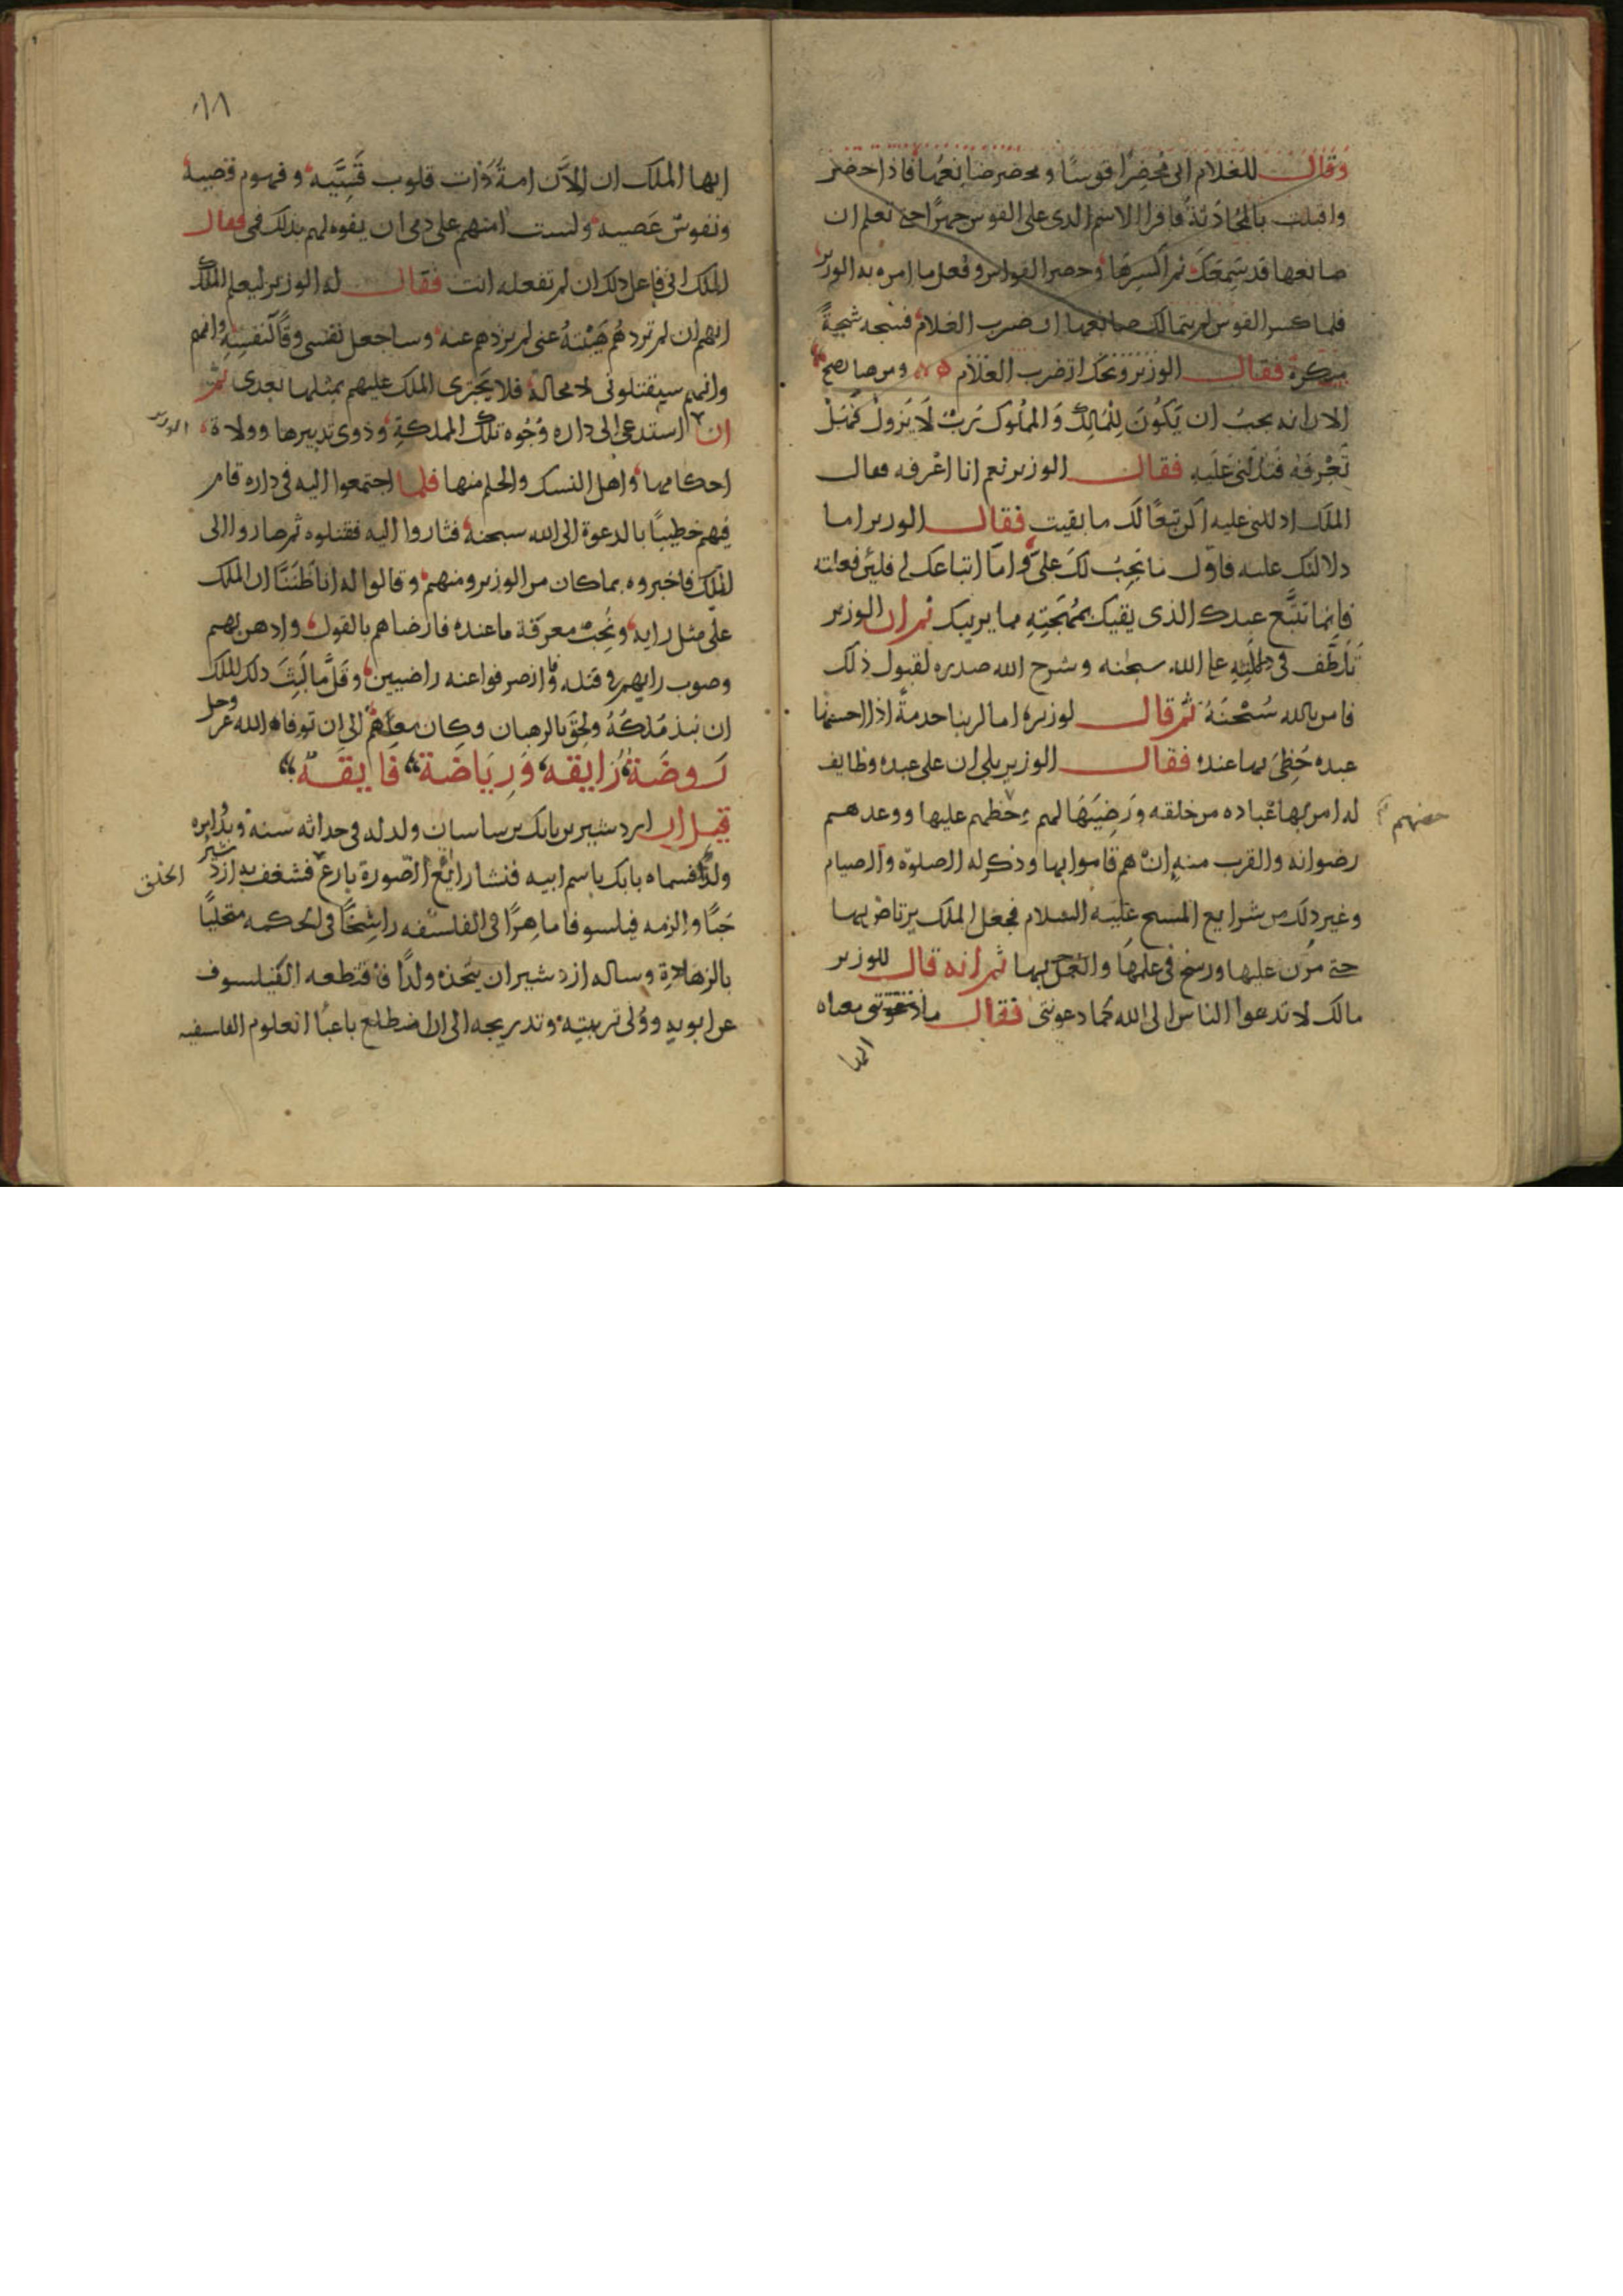 وقال للغلام انى محضر قوسا ومحضر صانعها فاذا حضر
واقبلت بالمحادثة فاقرا الاسم الذى على القوس جهرا حتى تعلم ان
صانعها قد سمعك ثم اكسرها وحضر القواس وفعل ما امره به الوزير
فلما كسر القوس لم يتمالك صانعها ان ضرب الغلام فشجه شجة
منكرة فقال الوزير ويحك اتضرب الغلام
الا انه يجب ان يكون للممالك والملوك رب لا يزول فهل
تعرفه فتدلنى عليه فقال الوزير نعم انا اعرفه فقال
الملك ادللنى عليه اكن تبعا لك ما بقيت فقال الوزير اما
دلالتك عليه فاول ما يجب لك على واما اتباعك لى فلين فعلته
فانما تتبع عبدك الذى يقيك بمهجته مما يريبك ثم ان الوزير
تلطف فى دلالته على الله سبحنه وشرح الله صدره لقبول ذلك
فامن بالله سبحنه ثم قال لوزيره اما لربنا خدمة اذا احسنها
عبده حظى بها عنده فقال الوزير بلى ان على عبده وظايف
له امر بها عباده من خلقه ورضيها لهم وحظهم عليها ووعدهم
رضوانه والقرب منه ان هم قاموا بها وذكر له الصلوة والصيام
وغير ذلك من شرايع المسيح عليه السلام فجعل الملك يرتاض بها
حتى مرن عليها ورسخ فى علمها والعمل بها ثم انه قال للوزير
مالك لا تدعوا الناس الى الله كما دعوتنى فقال
ايها
١٨
ايها الملك ان الان امة ذات قلوب قسيه وفهوم قصيه
ونفوس عصيه ولست امنهم على دمى ان يفوه لهم بذلك فمى فقال
الملك انى فاعل ذلك ان لم تفعله انت فقال له الوزير ليعلم الملك
انهم ان لم تردهم هيبته عنى لم يردهم عنه وساجعل نفسى وقا لنفسه وانهم
وانهم سيقتلونى لا محالة فلا يجترى الملك عليهم بمثلها بعدى ثم
ان استدعى الى داره وجوه تلك المملكة وذوى تدبيرها وولاة
الوزير
احكامها واهل النسك والحلم منها فلما اجتمعوا اليه فى داره قام
فيهم خطيبا بالدعوة الى الله سبحنه فثاروا اليه فقتلوه ثم صاروا الى
الملك فاخبروه بما كان من الوزير ومنهم وقالوا له انا ظننا ان الملك
على مثل رايه ونحب معرفة ما عنده فارضاهم بالقول وادهن لهم
وصوب رايهم فى قتله وانصرفوا عنه راضيين وقل ما لبث ذلك الملك
ان نبذ ملكه ولحق بالرهبان وكان معهم الى ان توفاه الله عز وجل
روضة رايقه ورياضة فايقه
قيل ان اردشير بن بابك بن ساسان ولد له فى حداثه سنه
ولد فسماه بابك باسم ابيه فنشا رايع الصورة بارع فشغف به اردشير
الخلق
حبا والزمه فيلسوفا ماهرا فى الفلسفه راسخا فى الحكمه متحليا
بالزهادة وساله اردشير ان يتخذه ولدا فاقتطعه الفيلسوف
عن ابويه وولى تربيته وتدريجه الى ان اضطلع باعبا العلوم الفلسفيه